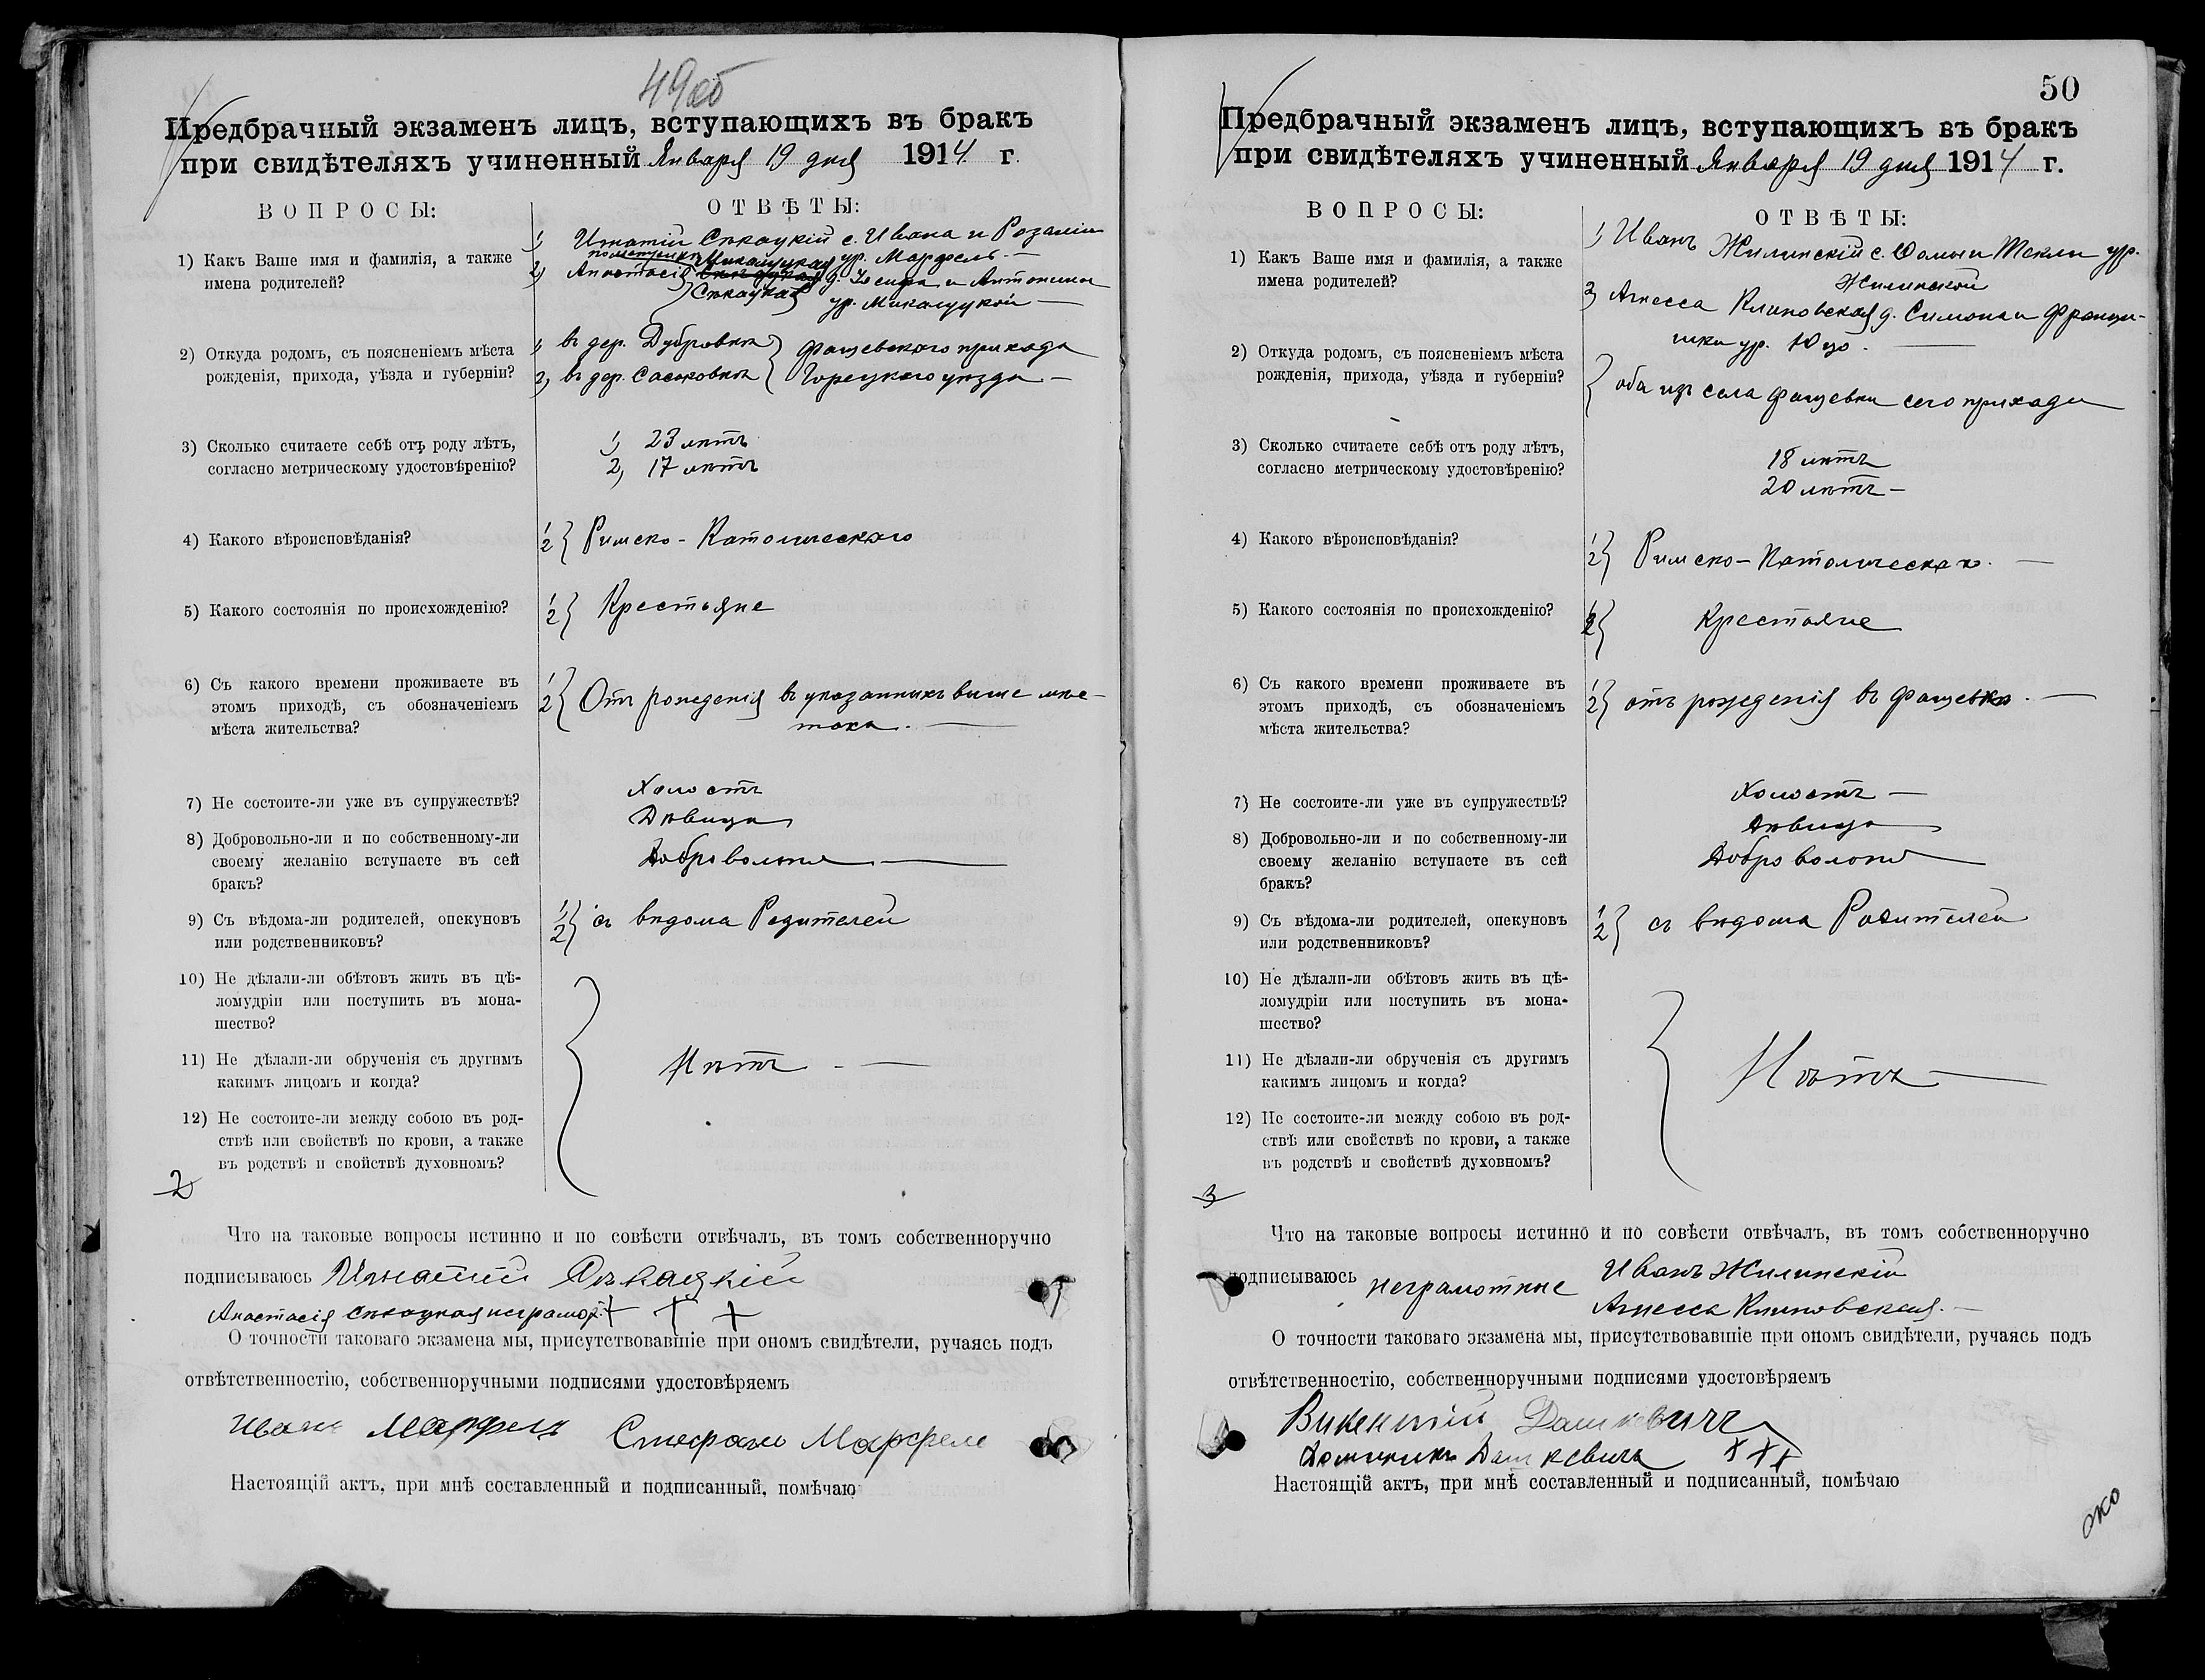 49об
Предбрачный экзаменъ лицъ, вступающихъ въ бракъ
при свидѣтеляхъ учиненный Января 19 дня 1914 г.
ВОПРОСЫ:
ОТВѢТЫ:
1) Какъ Ваше имя и фамилія, а также
имена родителей?
1) Игнатій Сѣкацкій с. Ивана и Розаліи
ур. Марфель. —
2) Анастасія Микалуцкая д. Іосифа и Антонины
Сѣкацкая ур. Микалуцкой —
2) Откуда родомъ, съ поясненіемъ мѣста
рожденія, прихода, уѣзда и губерніи?
1) въ дер. Дубровкѣ } Фащевскаго прихода
2) въ дер. Сасковкѣ { Горецкого уѣзда —
3) Сколько считаете себѣ отъ роду лѣтъ,
согласно метрическому удостовѣренію?
1) 23 лѣтъ
2) 17 лѣтъ
4) Какого вѣроисповѣданія?
1 2 } Римско-Католическаго
5) Какого состоянія по происхожденію?
1 2 } Крестьяне
6) Съ какого времени проживаете въ
этомъ приходѣ, съ обозначеніемъ
мѣста жительства?
1 2 { Отъ рожденія въ указанныхъ выше мѣс-
тахъ. —
7) Не состоите-ли уже въ супружествѣ?
Холостъ
Дѣвица
8) Добровольно-ли и по собственному-ли
своему желанію вступаете въ сей
бракъ?
Добровольно —
9) Съ вѣдома-ли родителей, опекуновъ
или родственниковъ?
1 2 } съ вѣдома Родителей
10) Не дѣлали-ли обѣтовъ жить въ цѣ-
ломудріи или поступить въ мона-
шество?
11) Не дѣлали-ли обрученія съ другимъ
какимъ лицомъ и когда?
Нѣтъ —
12) Не состоите-ли между собою въ род-
ствѣ или свойствѣ по крови, а также
въ родствѣ и свойствѣ духовномъ?
2
Что на таковые вопросы истинно и по совѣсти отвѣчалъ, въ томъ собственноручно
подписываюсь Игнатій Сѣкацкій
Анастасія Сѣкацкая неграмот + + +
О точности таковаго экзамена мы, присутствовавшіе при ономъ свидѣтели, ручаясь подъ
отвѣтственностію, собственноручными подписями удостовѣряемъ
Иванъ Марфель Стефанъ Марфель
Настоящій актъ, при мнѣ составленный и подписанный, помѣчаю
50
Предбрачный экзаменъ лицъ, вступающихъ въ бракъ
при свидѣтеляхъ учиненный Января 19 дня 1914 г.
ВОПРОСЫ:
ОТВѢТЫ:
1) Какъ Ваше имя и фамилія, а также
имена родителей?
1) Иванъ Жилинскій с. Фомы и Теклы ур.
Жилинской
2) Агнесса Климовская д. Симона и Францы-
шки ур. Юцо. —
2) Откуда родомъ, съ поясненіемъ мѣста
рожденія, прихода, уѣзда и губерніи?
{ оба изъ села Фащевки сего прихода
3) Сколько считаете себѣ отъ роду лѣтъ,
согласно метрическому удостовѣренію?
18 лѣтъ
20 лѣтъ —
4) Какого вѣроисповѣданія?
1 2 } Римско-Католическаго. —
5) Какого состоянія по происхожденію?
1 2 { Крестьяне
6) Съ какого времени проживаете въ
этомъ приходѣ, съ обозначеніемъ
мѣста жительства?
1 2 } отъ рожденія въ Фащевкѣ. —
7) Не состоите-ли уже въ супружествѣ?
Холостъ —
Дѣвица
8) Добровольно-ли и по собственному-ли
своему желанію вступаете въ сей
бракъ?
Добровольно
9) Съ вѣдома-ли родителей, опекуновъ
или родственниковъ?
1 2 } съ вѣдома Родителей
10) Не дѣлали-ли обѣтовъ жить въ цѣ-
ломудріи или поступить въ мона-
шество?
11) Не дѣлали-ли обрученія съ другимъ
какимъ лицомъ и когда?
Нѣтъ —
12) Не состоите-ли между собою въ род-
ствѣ или свойствѣ по крови, а также
въ родствѣ и свойствѣ духовномъ?
3
Что на таковые вопросы истинно и по совѣсти отвѣчалъ, въ томъ собственноручно
подписываюсь неграмотные Иванъ Жилинскій
Агнесса Климовская. —
О точности таковаго экзамена мы, присутствовавшіе при ономъ свидѣтели, ручаясь подъ
отвѣтственностію, собственноручными подписями удостовѣряемъ
Викентій Дашкевичъ
Доминикъ Дашкевичъ +++
Настоящій актъ, при мнѣ составленный и подписанный, помѣчаю